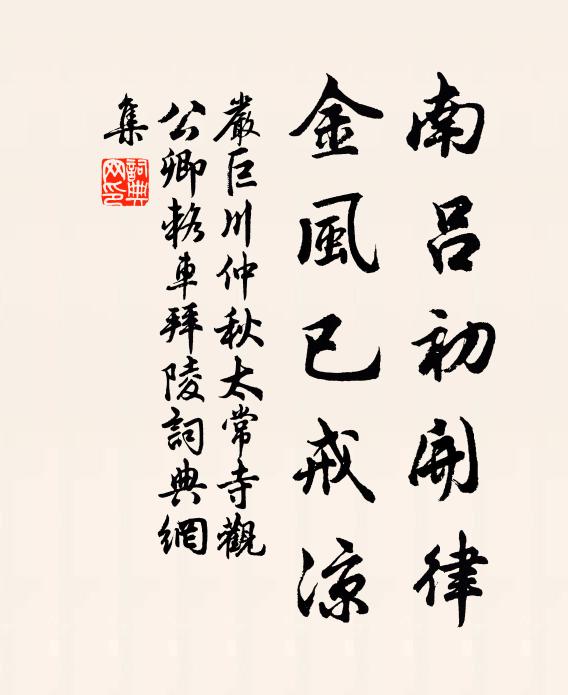 南呂初開律
金風已戒涼
嚴巨川仲秋太常寺觀
公卿輅車拜陵詞典網
集
詞典
网印